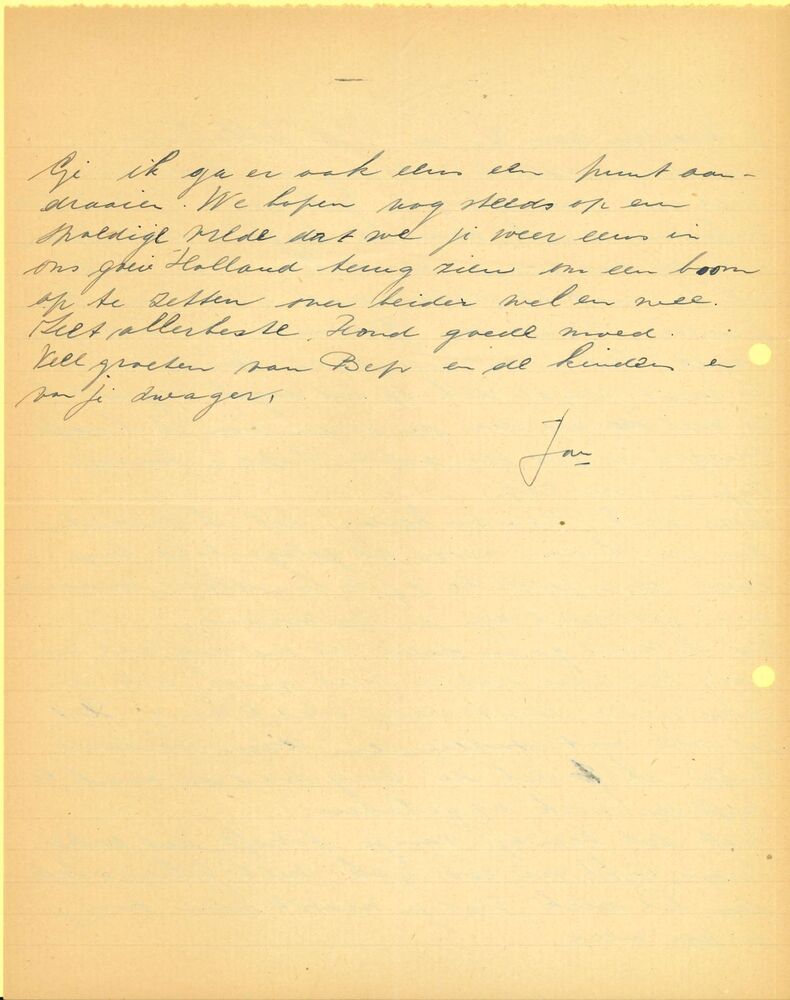 ik ga er ook eens een punt aan-
draaien. We hopen nog steeds op een
spoedige vrede dat we je weer eens in
ons goeie Holland terug zien om een boom
op te zetten over beider wel en wee.
Het allerbeste. Houd goede moed.
Veel groeten van Bep en de kinders en
van je zwager,
Jan